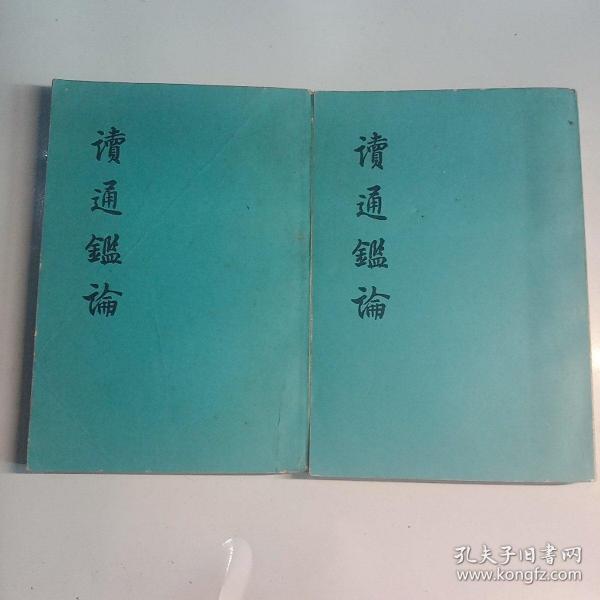 讀通鑑論
讀通鑑論
孔夫子旧书网
www.kongfz.com